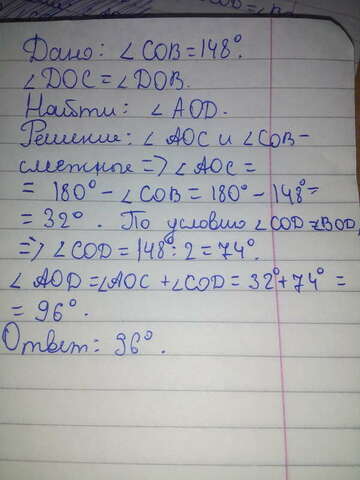 Дано: ∠COB = 148°.
∠DOC = ∠DOB.
Найти: ∠AOD.
Решение: ∠AOC и ∠COB –
смежные => ∠AOC =
= 180° – ∠COB = 180° – 148° =
= 32°. По условию ∠COD = ∠BOD,
=> ∠COD = 148° : 2 = 74°.
∠AOD = ∠AOC + ∠COD = 32° + 74° =
= 96°.
Ответ: 96°.